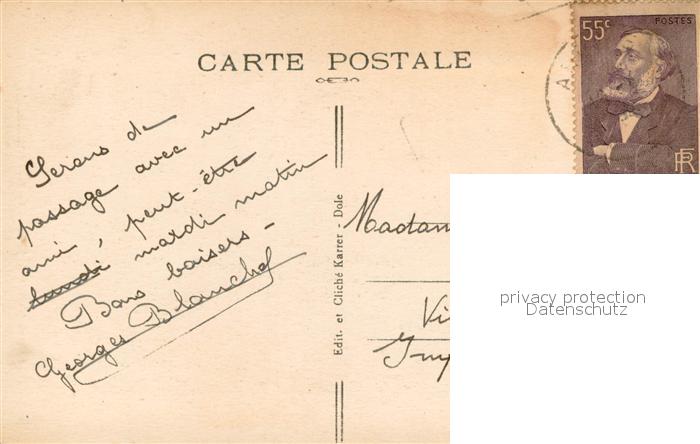 CARTE POSTALE
55c POSTES
RF
Serons de
passage avec un
ami, peut-être
lundi mardi matin
Bons baisers -
Georges Blanchet
Edit. et Cliché Karrer - Dole
Madam
Vi
privacy protection
Datenschutz